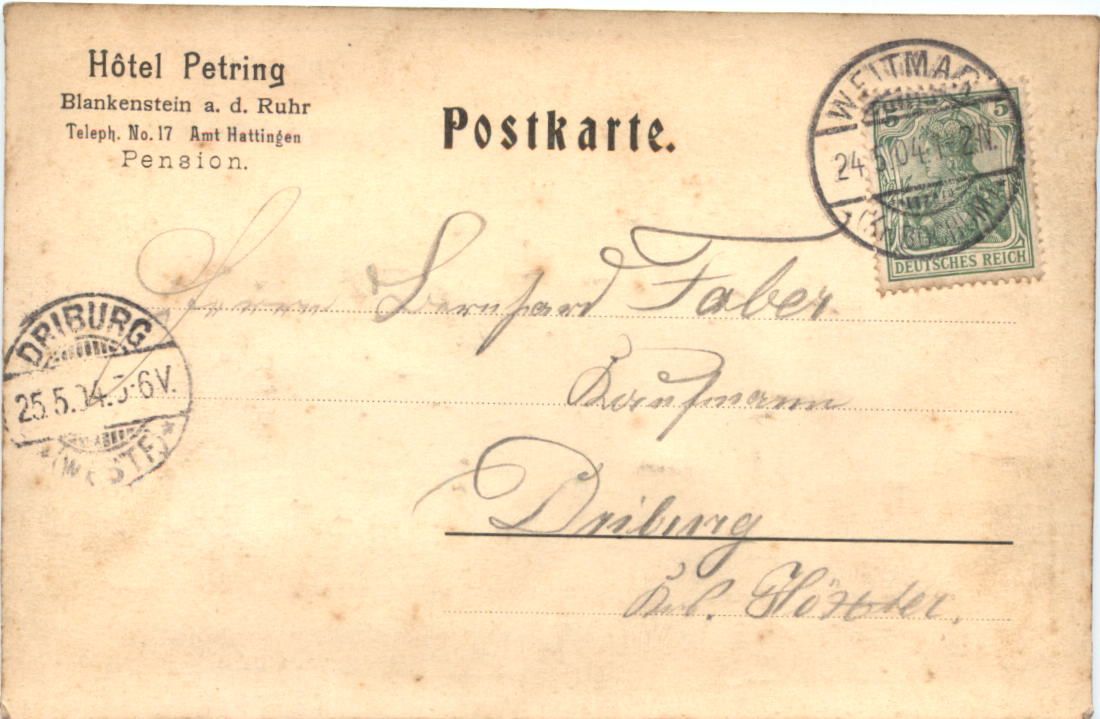 Hôtel Petring
Blankenstein a. d. Ruhr
Teleph. No. 17 Amt Hattingen
Pension.
Postkarte.
WEITMAR
24.5.04. 1-2N.
5
DEUTSCHES REICH
Herrn Bernhard Faber
Kaufmann
DRIBURG
25.5.04. 5-6V.
*(WESTF)*
Driburg
Höxter.